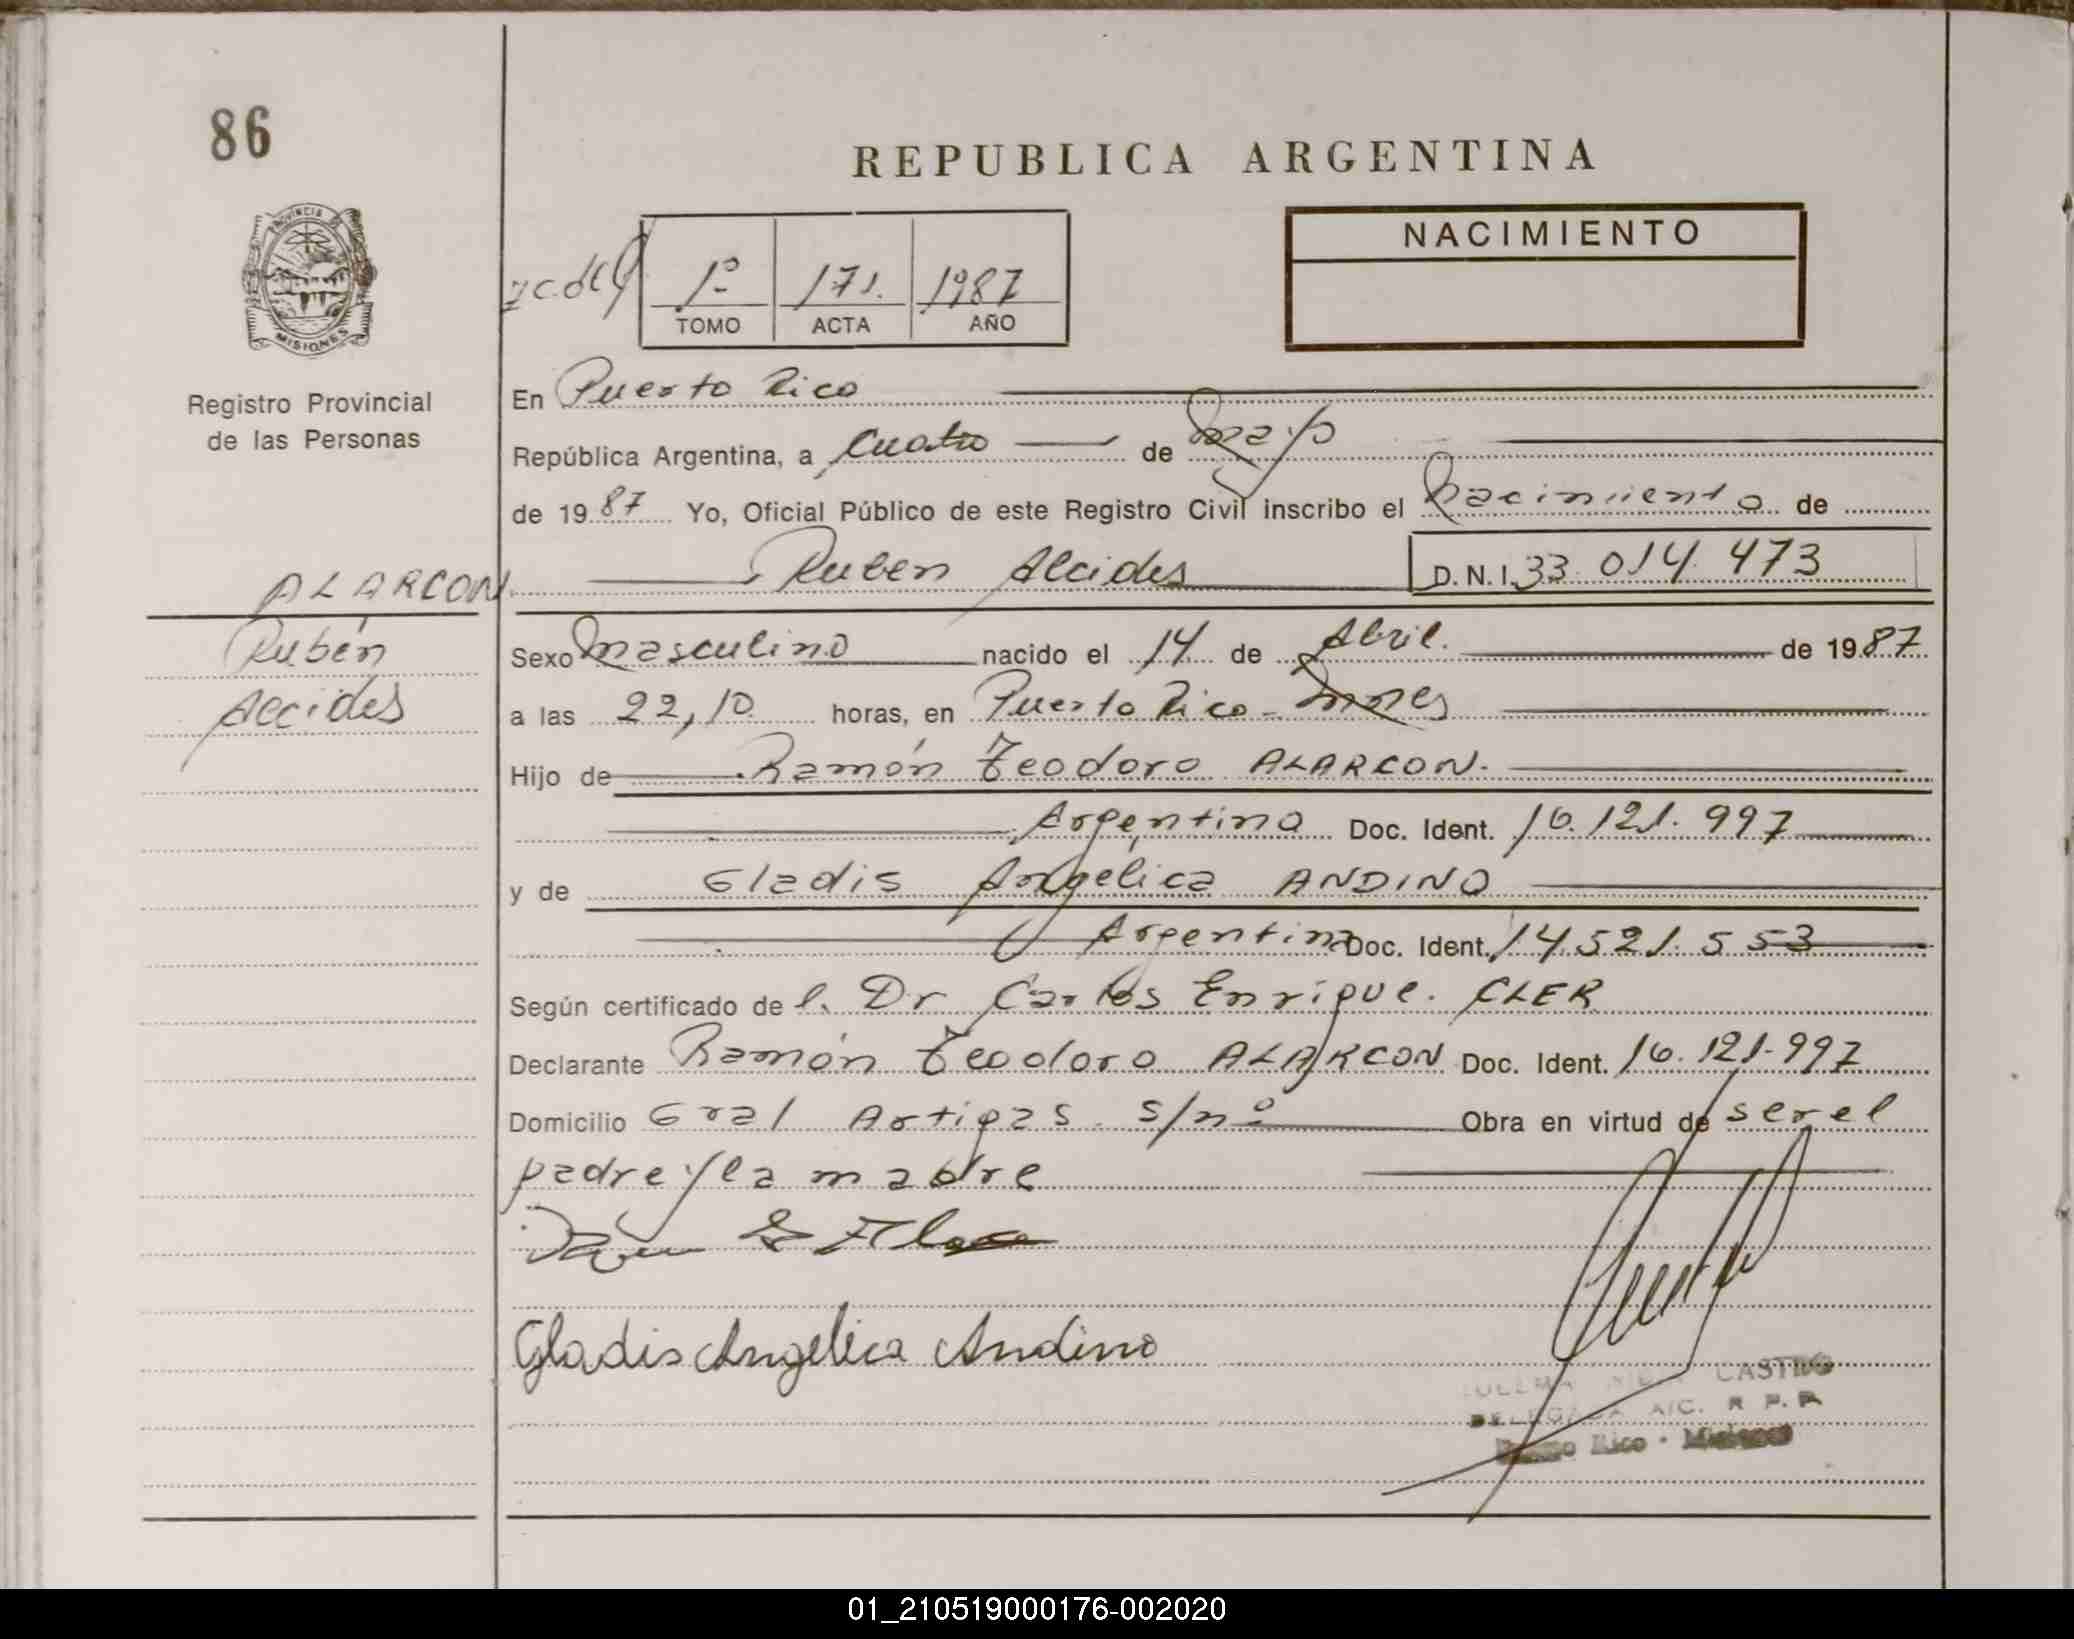 86
REPUBLICA ARGENTINA
PROVINCIA DE
MISIONES
Registro Provincial
de las Personas
1º 171. 1987
TOMO ACTA AÑO
NACIMIENTO
En Puerto Rico
República Argentina, a Cuatro de mayo
de 1987 Yo, Oficial Público de este Registro Civil inscribo el Nacimiento de
ALARCON Ruben Alcides D.N.I. 33 014 473
Rubén
Alcides
Sexo masculino nacido el 14 de Abril. de 1987
a las 22,10 horas, en Puerto Rico - Mnes
Hijo de Ramón Teodoro ALARCON.
Argentina Doc. Ident. 16.121.997
y de Gladis Angélica ANDINO
Argentina Doc. Ident. 14.521.553
Según certificado de l. Dr Carlos Enrique. CLER
Declarante Ramón Teodoro ALARCON Doc. Ident. 16.121-997
Domicilio Gral Artigas s/nº Obra en virtud de ser el
padre y la madre
Gladis Angelica Andino
CASTRO
DELEGADA A/C. R. P. P.
Puerto Rico - Misiones
01_210519000176-002020